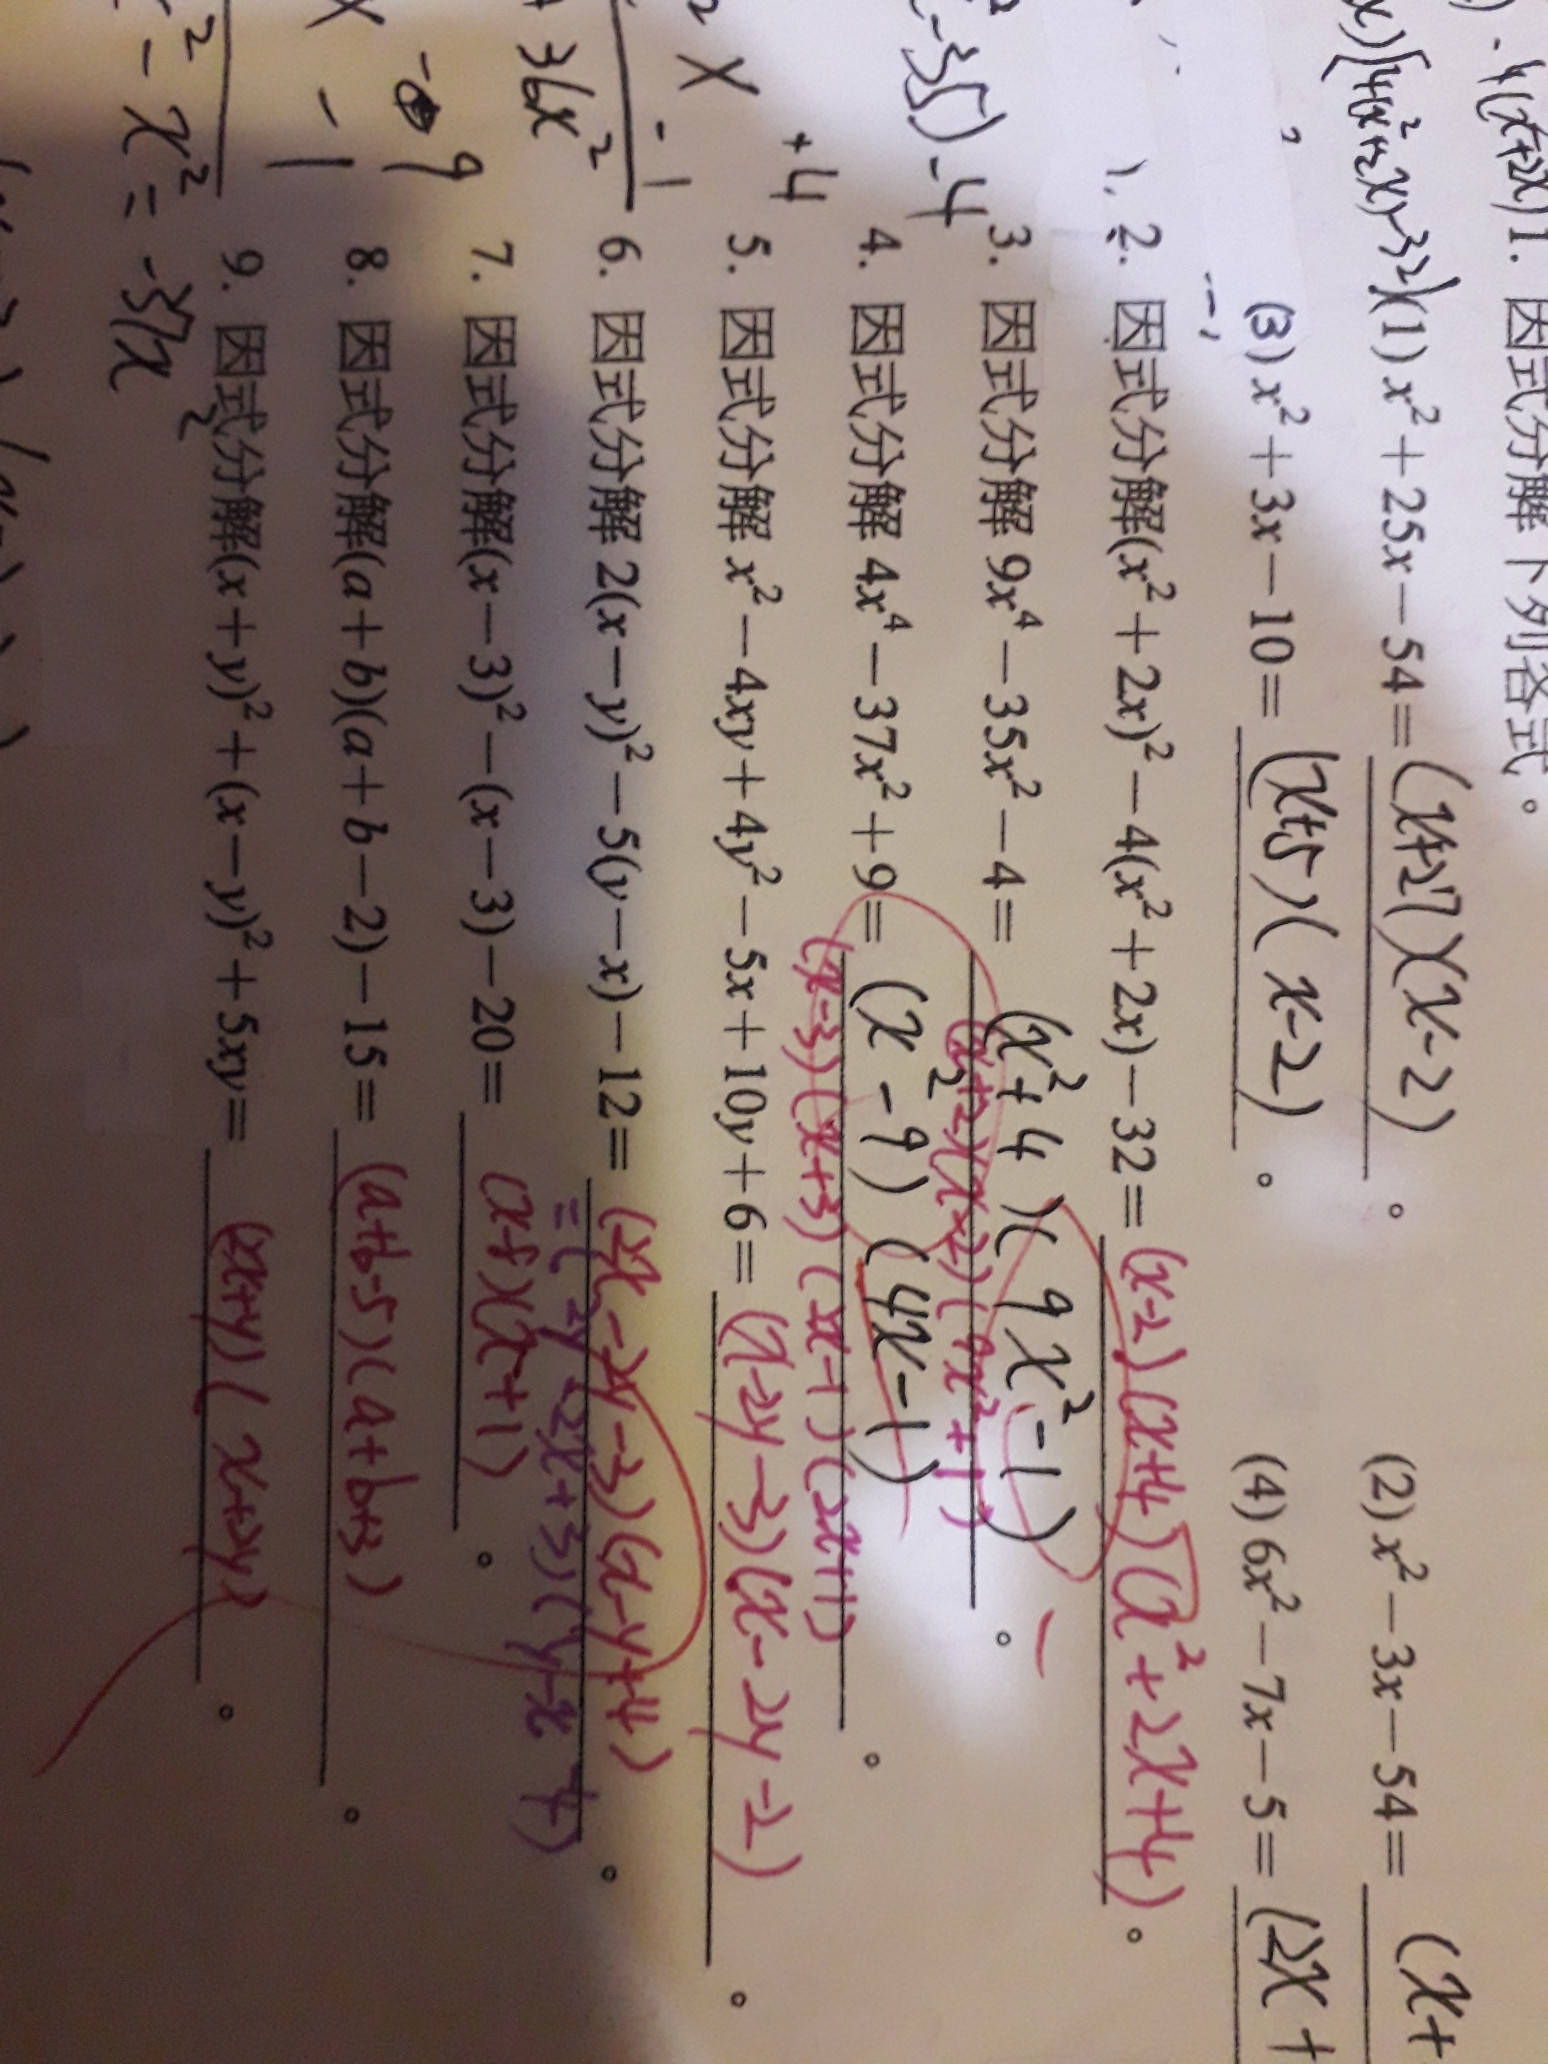 1. 因式分解下列各式。
(1) x² + 25x − 54 = (x+27)(x-2) 。
(2) x² − 3x − 54 = (x+
(3) x² + 3x − 10 = (x+5)(x-2) 。
(4) 6x² − 7x − 5 = (2x+
2. 因式分解(x² + 2x)² − 4(x² + 2x) − 32 = (x-2)(x+4)(x²+2x+4) 。
3. 因式分解 9x⁴ − 35x² − 4 = (x²+4)(9x²-1) 。
4. 因式分解 4x⁴ − 37x² + 9 = (x²-9)(4x-1) 。
(x-3)(x+3)(2x-1)(2x+1)
5. 因式分解 x² − 4xy + 4y² − 5x + 10y + 6 = (x-2y-3)(x-2y-2) 。
6. 因式分解 2(x − y)² − 5(y − x) − 12 = (2x-2y-3)(x-y+4) 。
=(2y-2x+3)(y-x-4)
7. 因式分解(x − 3)² − (x − 3) − 20 = (x-8)(x+1) 。
8. 因式分解(a + b)(a + b − 2) − 15 = (a+b-5)(a+b+3) 。
9. 因式分解(x + y)² + (x − y)² + 5xy = (2x+y)(x+2y) 。